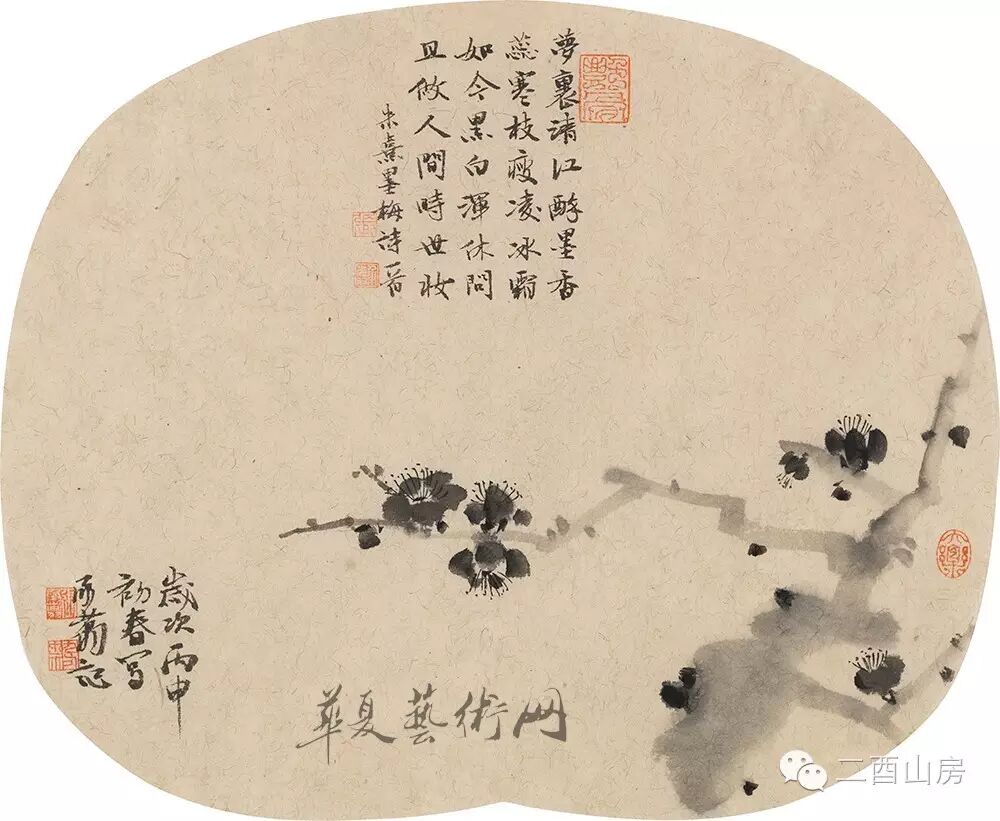 夢裏清江醉墨香
蕊寒枝瘦凌冰霜
如今黑白渾休問
且做人間時世妝
朱熹墨梅詩
歲次丙申
初春寫
記
華夏藝術网
二酉山房